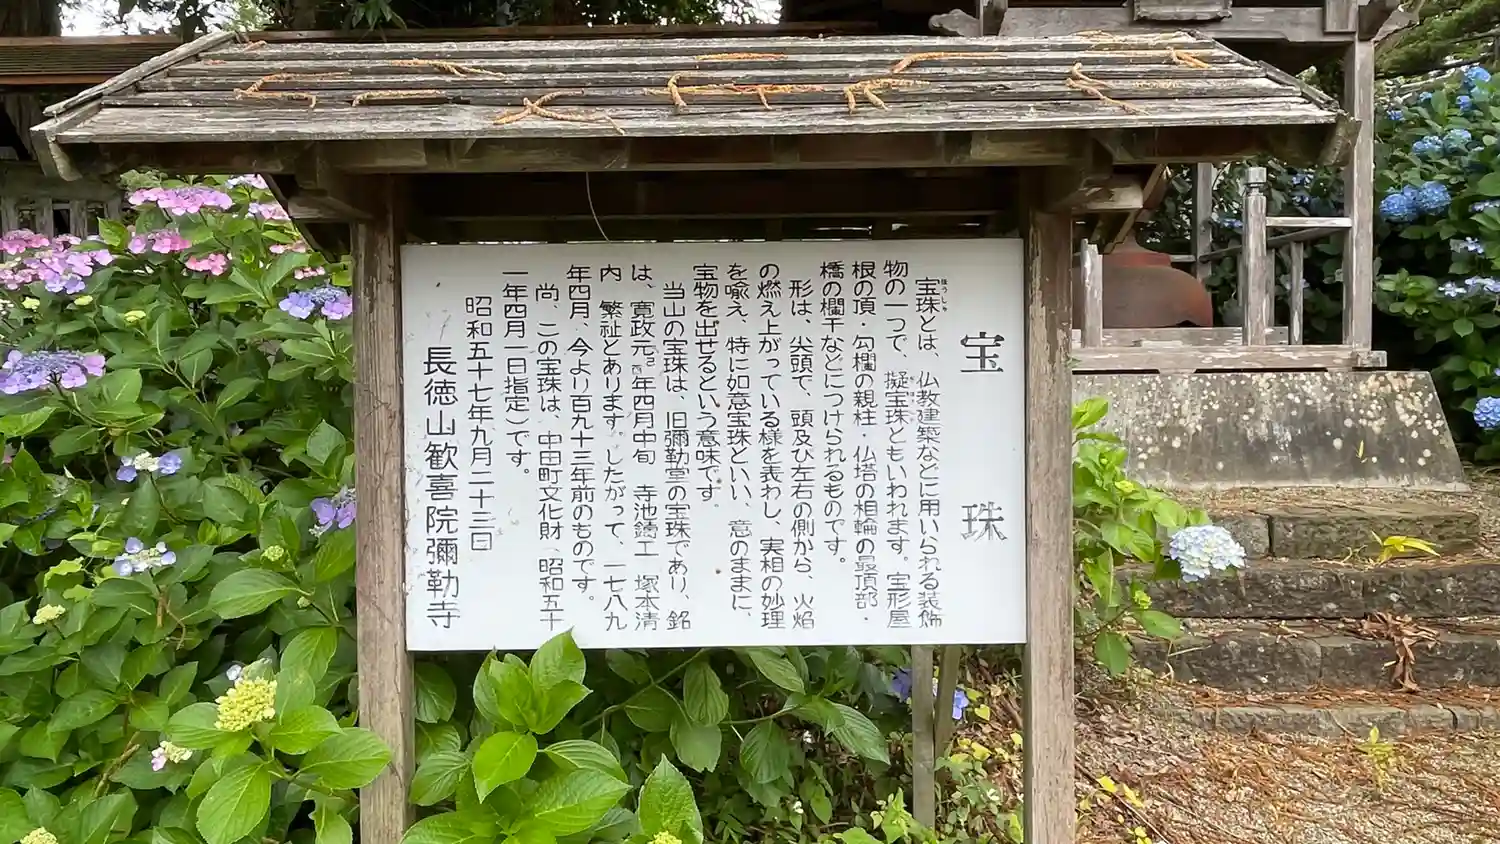 宝珠
宝珠とは、仏教建築などに用いられる装飾
物の一つで、擬宝珠ともいわれます。宝形屋
根の頂・勾欄の親柱・仏塔の相輪の最頂部・
橋の欄干などにつけられるものです。
形は、尖頭で、頭及び左右の側から、火焰
の燃え上がっている様を表わし、実相の妙理
を喩え、特に如意宝珠といい、意のままに、
宝物を出せるという意味です。
当山の宝珠は、旧彌勒堂の宝珠であり、銘
は、寛政元己酉年四月中旬 寺池鋳工 塚本清
内 繁祉とあります。したがって、一七八九
年四月、今より百九十三年前のものです。
尚、この宝珠は、中田町文化財(昭和五十
一年四月一日指定)です。
昭和五十七年九月二十三日
長徳山歓喜院彌勒寺